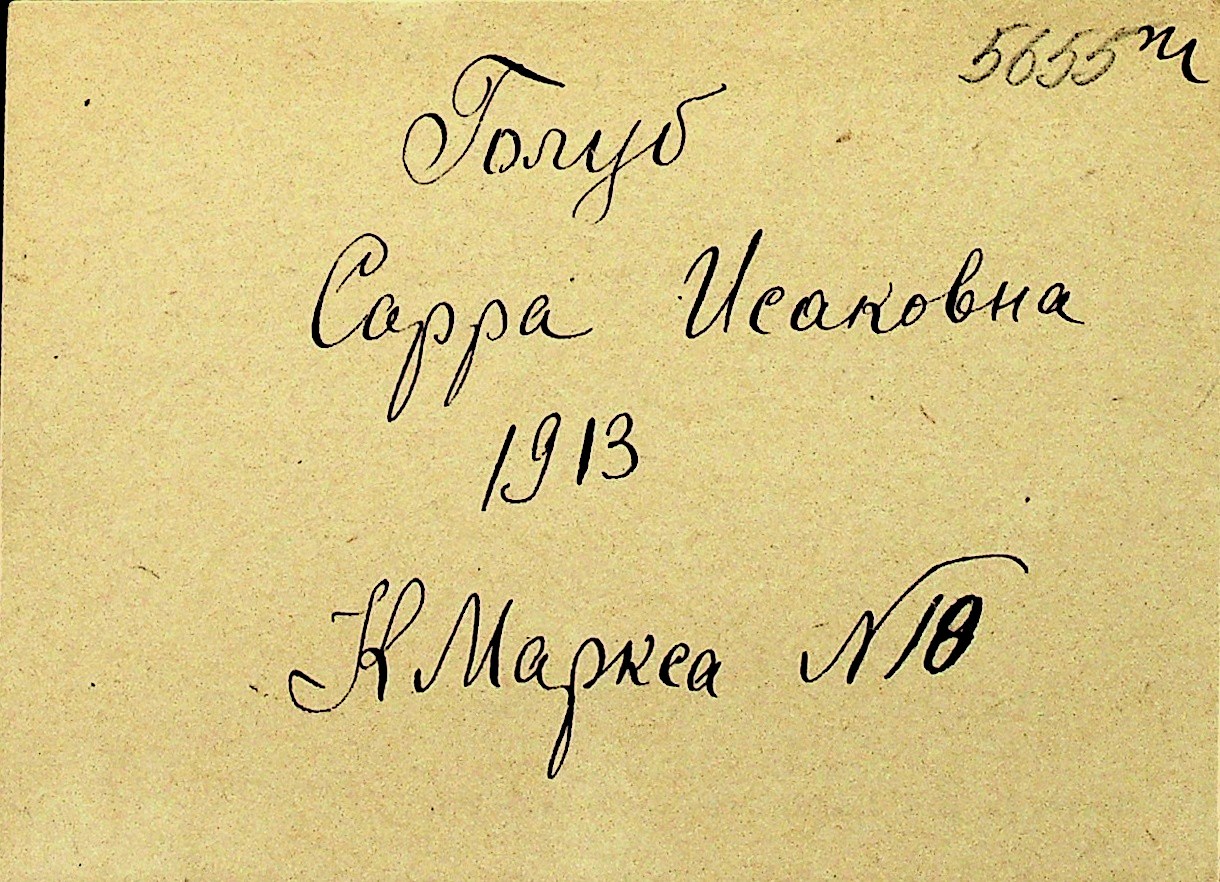 5655 п
Голуб
Сарра Исаковна
1913
К Маркса N 18